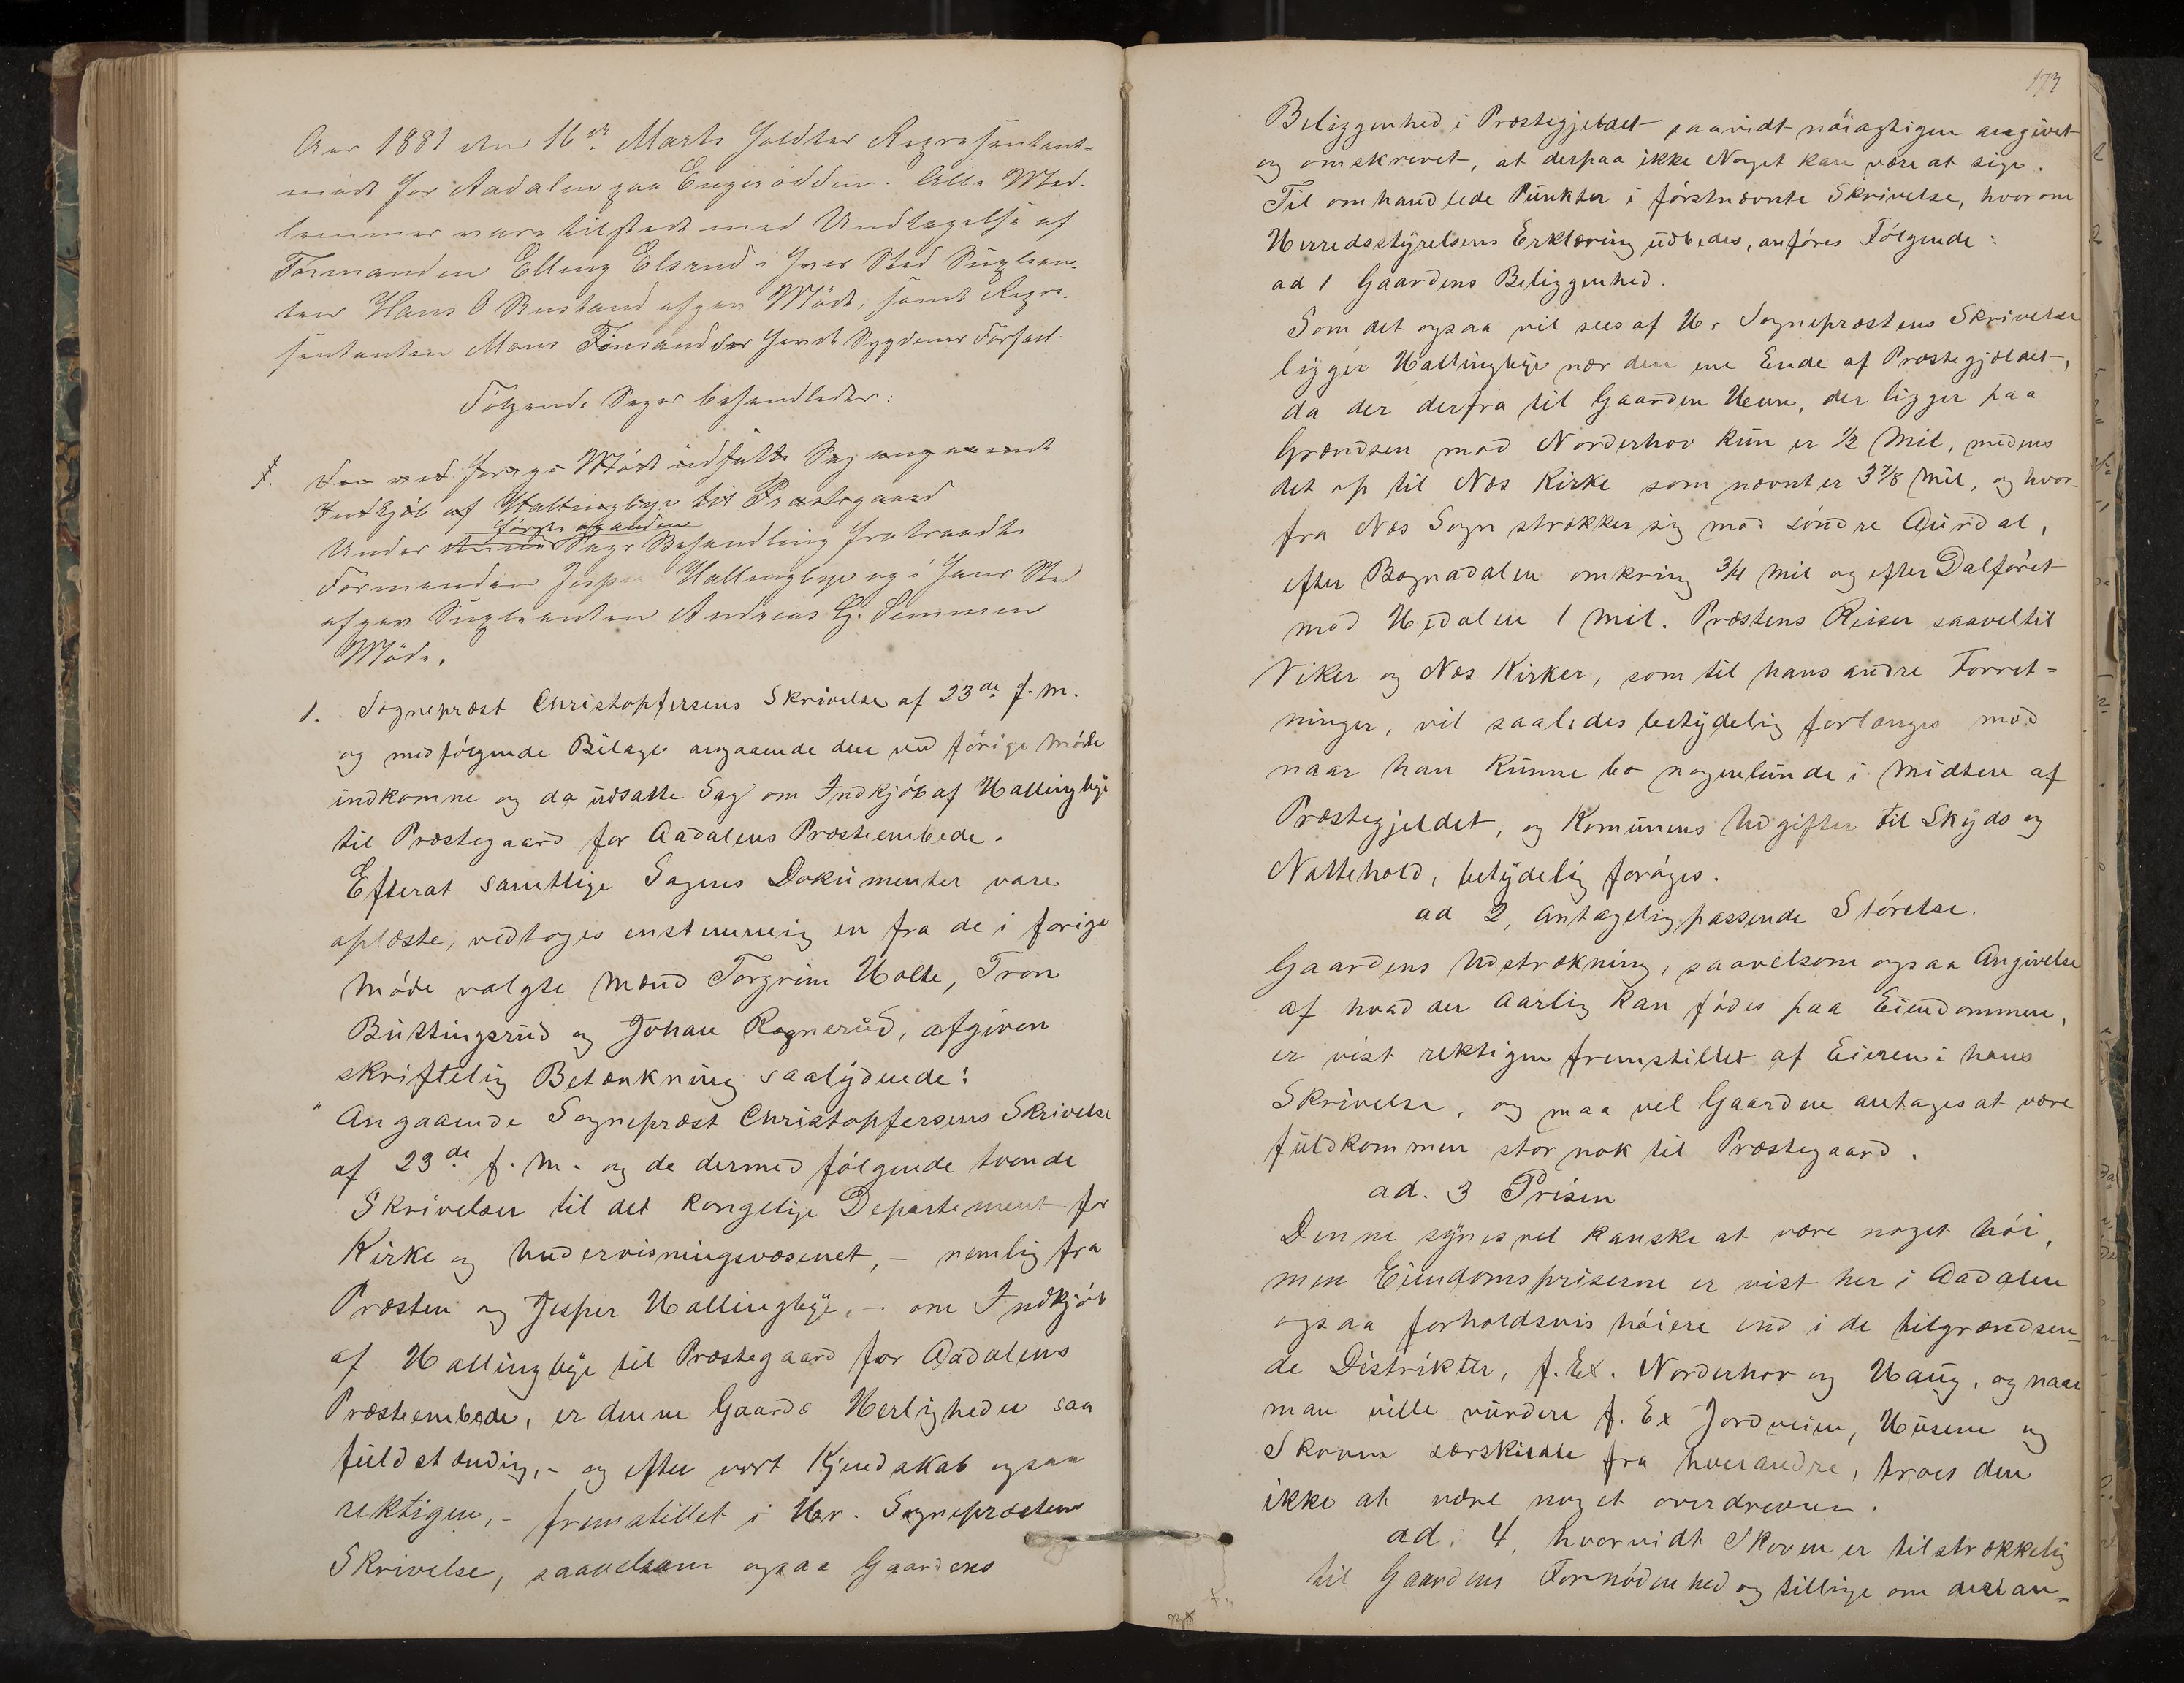 Aar 1881 den 16de Marts holdtes Repræsentant-
møde for Aadalen paa Engerodden. Alle Med-
lemmer vare tilstede med Undtagelse af
Formanden Elling Elsrud i hvis Sted Suplean-
ten Hans O Rustand afgav Møde, samt Repræ-
sentanten Mons Finsand der havde Sygdoms Forfald.
Følgende Sager behandledes:
1. Den ved forrige Møde udsatte Sag angaaende
Indkjøb af Hallingbye til Præstegaard
første og anden
Under denne Sags Behandling fratraadte
Formanden Jesper Hallingbye og i hans Sted
afgav Supleanten Andreas G. Semmen
Møde.
1. Sogneprest Christophersens Skrivelse af 23de f. M.
og medfølgende Bilage angaaende den ved forige Møde
indkomne og da udsatte Sag om Indkjøb af Hallingbye
til Præstegaard for Aadalens Præsteembede.
Efterat samtlige Sagens Dokumenter vare
oplæste, vedtoges enstemmig en fra de i forige
Møde valgte Mænd Torgrim Holte, Tron
Buttingsrud og Johan Rognerud, afgiven
skriftelig Betænkning saalydende:
"Angaaende Sogneprest Christophersens Skrivelse
af 23de f. M. og de dermed følgende tvende
Skrivelser til det kongelige Departement for
Kirke og Undervisningsvæsenet, – nemlig fra
Præsten og Jesper Hallingbye, – om Indkjøb
af Hallingbye til Præstegaard for Aadalens
Præsteembede, er denne Gaards Herligheder saa
fuldstændig, – og efter vort Kjendskab ogsaa
rektigen, – fremstillet i Hr. Sogneprestens
Skrivelse, saavelsom ogsaa Gaardens
173
Beliggenhed i Præstegjeldet saavidt nøiagtigen angivet
og omskrevet, at derpaa ikke Noget kan være at sige.
Til omhandlede Punkter i førstnævnte Skrivelse, hvorom
Herredsstyrelsens Erklæring udbedes, anføres Følgende:
ad 1 Gaardens Beliggenhed.
Som det ogsaa vil sees af Hr Sogneprestens Skrivelse
ligger Hallingbye nær den ene Ende af Præstegjældet,
da der derfra til Gaarden Heen, der ligger paa
Grændsen mod Norderhov kun er 1/2 Mil, medens
det op til Næs Kirke som nævnt er 3 7/8 Mil, og hvor-
fra Næs Sogn strækker sig mod søndre Aurdal,
efter Bagnadalen omkring 3/4 Mil og efter Dalføret
mod Hedalen 1 Mil. Præstens Reiser saavel til
Viker og Næs Kirker, som til hans andre Forret-
ninger, vil saaledes betydelig forlænges mod
naar han kunne bo nogenlunde i Midten af
Præstegjeldet, og Komunens Udgifter til Skyds og
Nattehold, betydelig forøges.
ad 2, antagelig passende Størelse.
Gaardens Udstrækning, saavelsom ogsaa Angivelse
af hvad der aarlig kan fødes paa Eiendommen,
er vist rektigen fremstillet af Eieren i hans
Skrivelse, og maa vel Gaarden antages at være
fuldkommen stor nok til Præstegaard.
ad. 3 Prisen
Denne synes vel kanske at være noget høi,
men Eiendomspriserne er vist her i Aadalen
ogsaa forholdsvis høiere end i de tilgrændsen-
de Distrikter, f. Ex. Norderhov og Haug, og naar
man ville vurdere f. Ex Jordveien, Husene og
Skoven særskildte fra hverandre, troes den
ikke at være noget overdreven.
ad: 4, hvorvidt Skoven er tilstrækkelig
til Gaardens Fornødenhed og tillige om dens an-